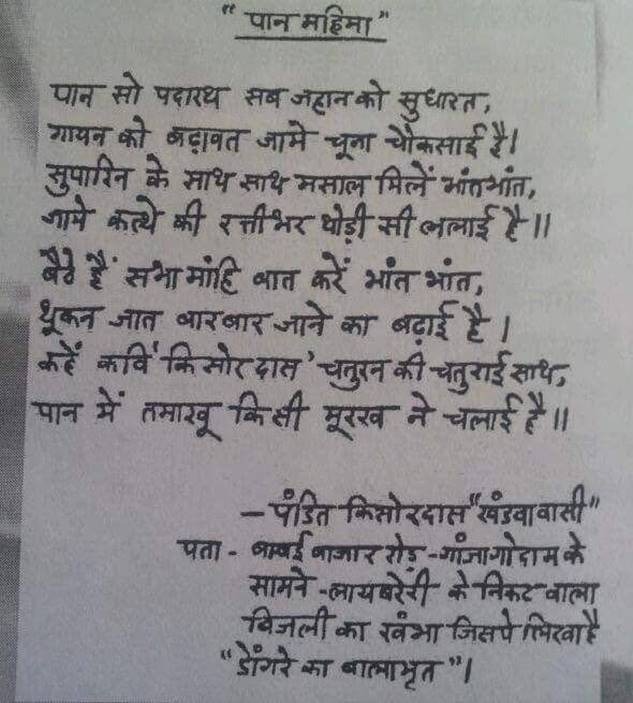 "पान महिमा"
पान सो पदारथ सब जहान को सुधारत,
गायन को बढ़ावत जामे चूना चौकसाई है।
सुपारिन के साथ साथ मसाल मिलें भांतभांत,
जामे कत्थे की रत्तीभर थोड़ी सी ललाई है॥
बैठे हैं सभा मांहि बात करें भांत भांत,
थूकन जात बारबार जाने का बढ़ाई है।
कहें कवि 'किसोरदास' चतुरन की चतुराई साथ,
पान में तमाखू किसी मूरख ने चलाई है॥
-पंडित किसोरदास "खंडवावासी"
पता - बाम्बई बाजार रोड़ -गांजागोदाम के
सामने -लायबरेरी के निकट वाला
बिजली का खंभा जिसपे लिखा है
"डोंगरे का बालामृत"।